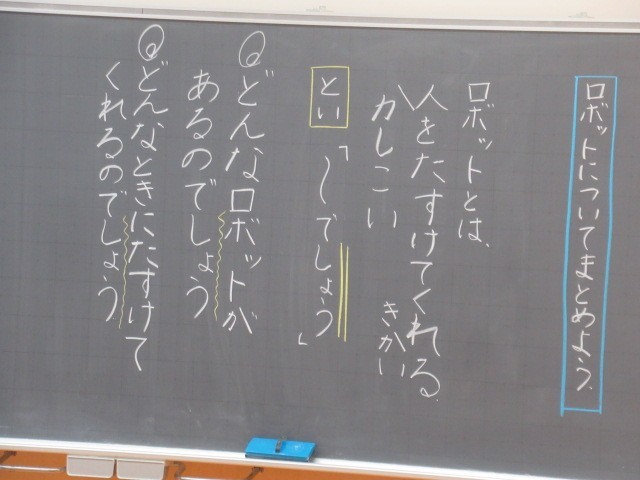 ロボットについてまとめよう。
ロボットとは、
人をたすけてくれる
かしこい きかい
とい 「～でしょう」
Ⓠどんなロボットが
あるのでしょう
Ⓠどんなときにたすけて
くれるのでしょう